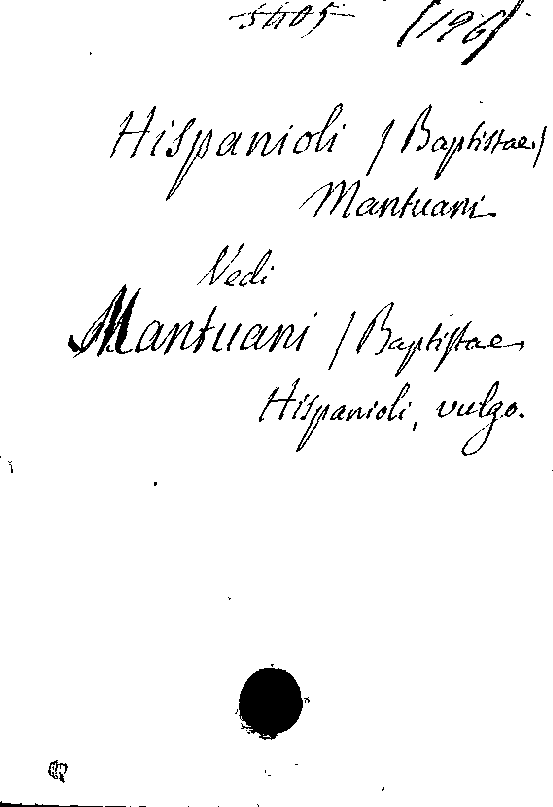 5405 (196)
Hispanioli / Baptistae /
Mantuani.
Vedi
Mantuani / Baptistae
Hispanioli, vulgo.